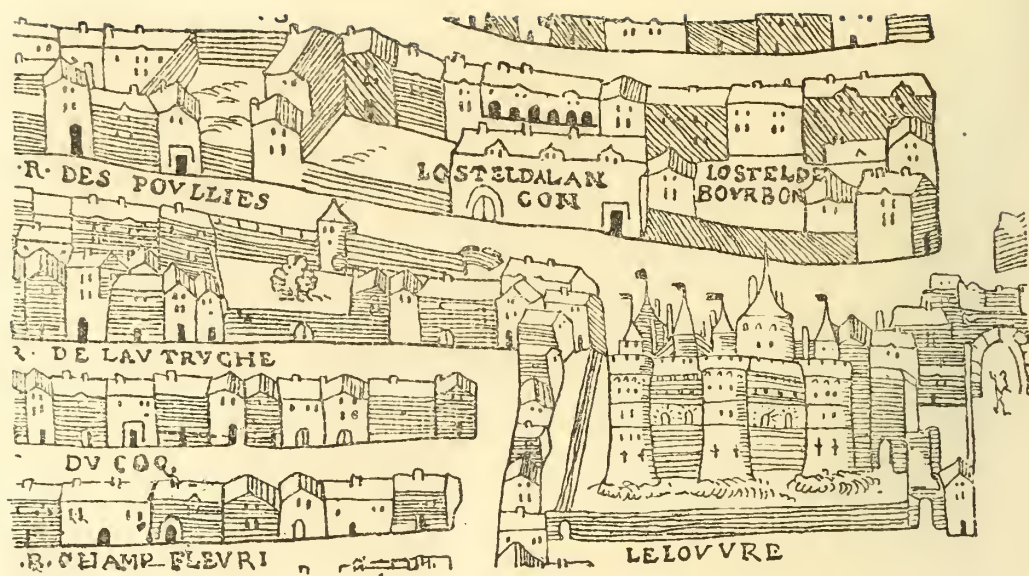 .R. DES POVLLIES
LOSTELDALAN
CON
LOSTELDE
BOVRBON
R. DE LAVTRVCHE
DV COQ
.R. CHAMP FLEVRI
LELOVVRE